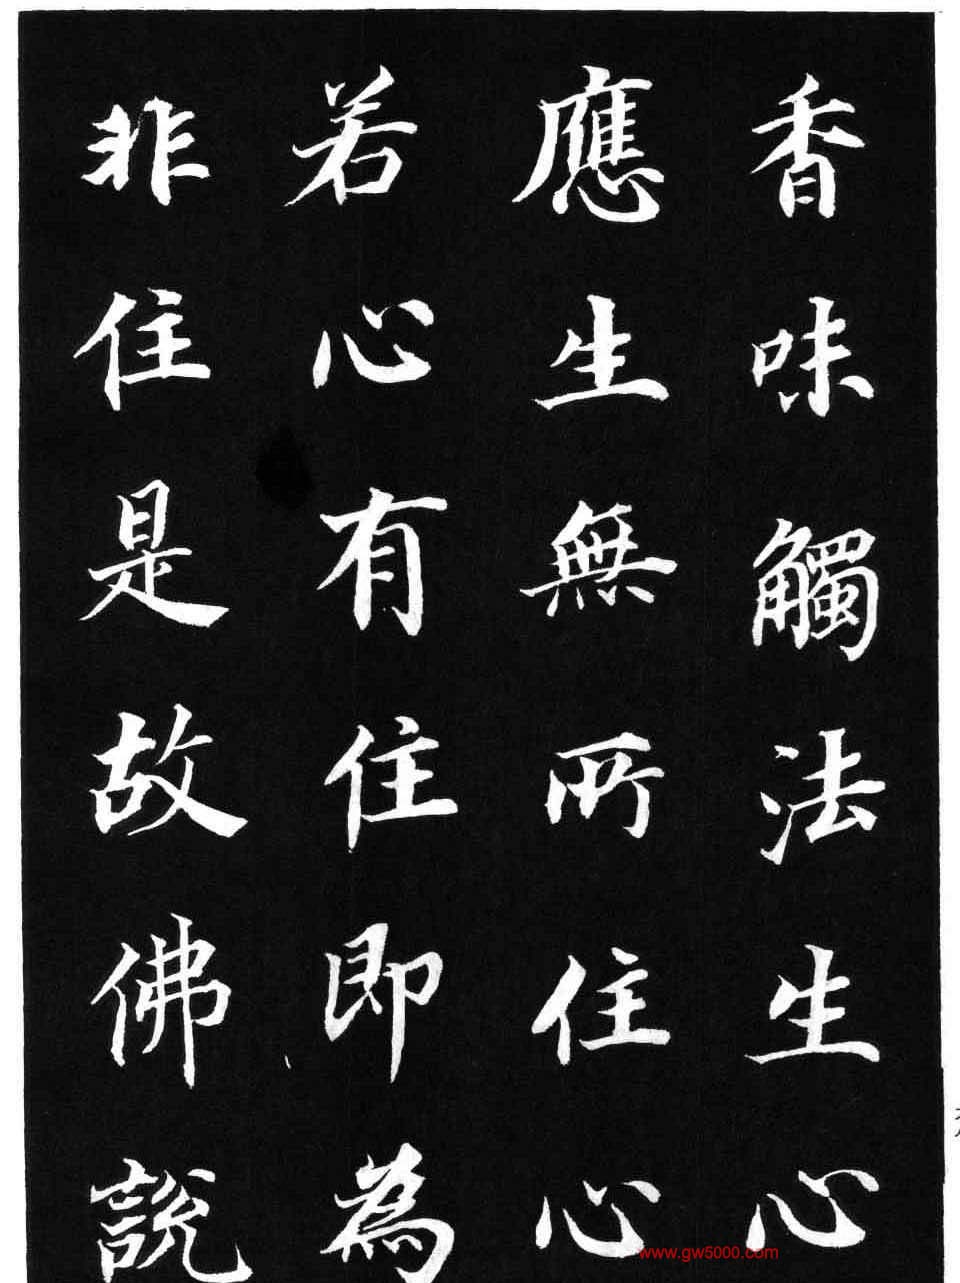 香味觸法生心
應生無所住心
若心有住即為
非住是故佛說
www.gw5000.com